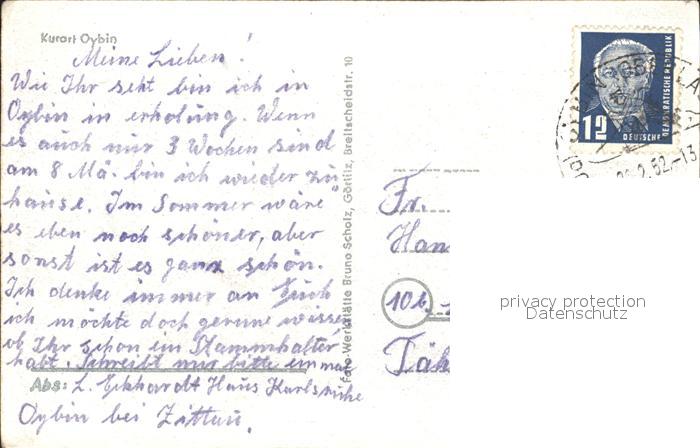 Kurort Oybin
Meine Lieben!
Wie Ihr seht bin ich in
Oybin in erholung. Wenn
es auch nur 3 Wochen sind
am 8 Mä. bin ich wieder zu
hause. Im Sommer wäre
es eben noch schöner, aber
sonst ist es ganz schön.
Ich denke immer an Euch
ich möchte doch gerne wissen
ob Ihr schon ein Stammhalter
habt. Schreibt mir bitte einmal
Abs: L. Eckhardt Haus Karlsruhe
Oybin bei Zittau.
Foto-Werkstätte Bruno Scholz, Görlitz, Breitscheidstr. 10
12
DEUTSCHE
DEMOKRATISCHE REPUBLIK
2.52.-13
Fr.
Han
10b
privacy protection
Datenschutz